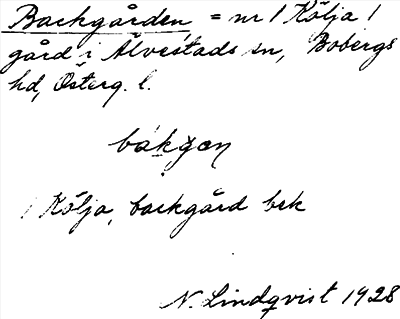 Backgården = nr 1 Kölja 1
gård i Älvestads sn, Bobergs
hd, Österg. l.
bakgan
1 Kölja, backgård bek
N. Lindqvist 1928